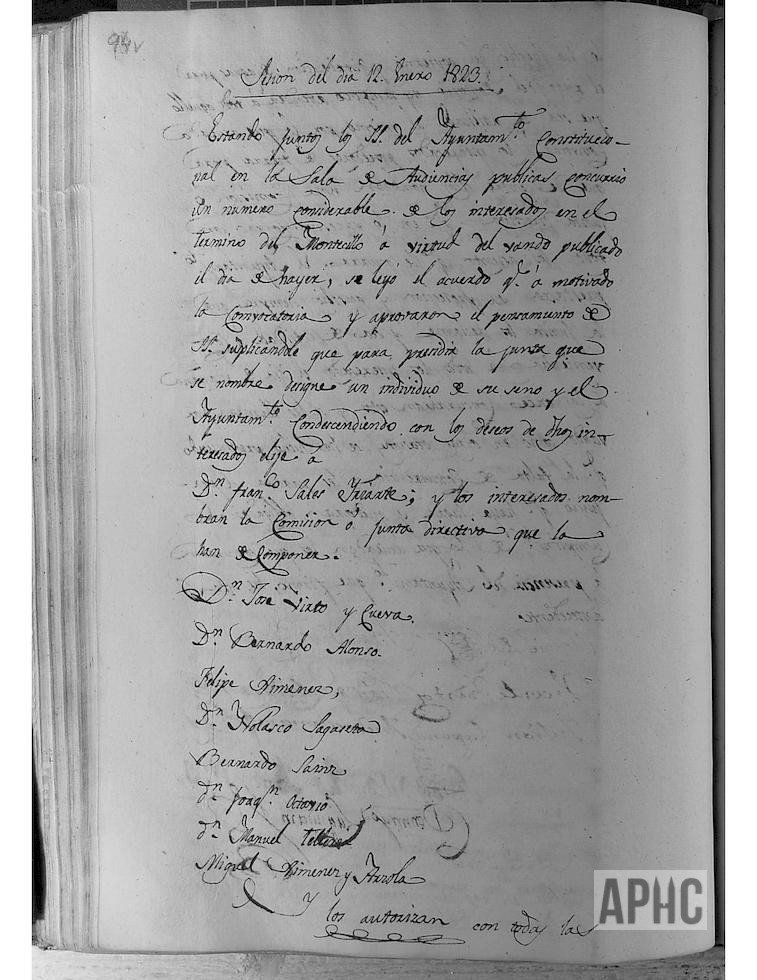 94v
Sesion del dia 12. Enero 1823.
Estando juntos los SS. del Ayuntam.to Constitucio-
nal en la Sala de Audiencias publicas, concurrio
un numero considerable de los interesados en el
termino del Montecillo á virtud del vando publicado
el dia de hayer, se leyó el acuerdo q.e á motivado
la Convocatoria y aprovaron el pensamiento de
SS. suplicandole que para presidir la junta que
se nombre designe un individuo de su seno y el
Ayuntam.to Condescendiendo con los deseos de dhos in-
teresados elije á
D.n Fran.co Sales Yriarte; y los interesados nom-
bran la Comision ó Junta directiva que la
han de Componer.
D.n Jose Virto y Cueva.
D.n Bernardo Alonso.
Felipe Ximenez,
D.n Nolasco Sagaseta
Bernardo Sainz
D.n Joaq.n Octavio
D.n Manuel
Miguel Ximenez y Arzola
y los autorizan con todas las
APHC